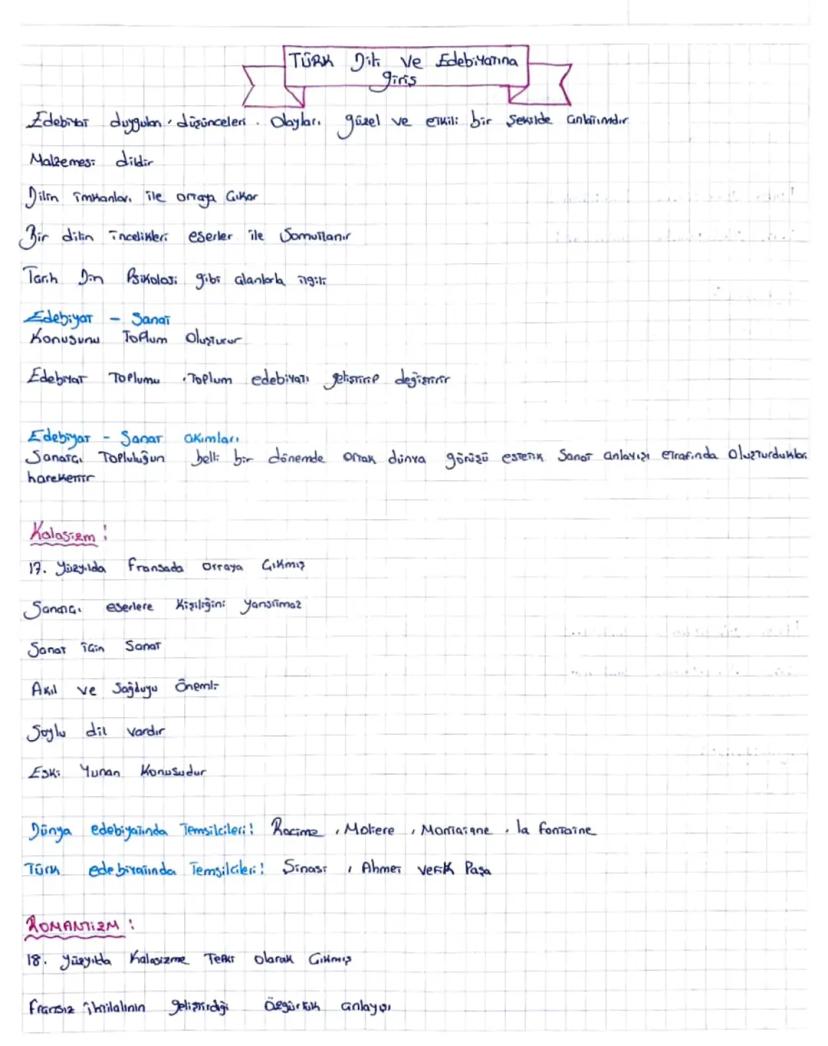 TÜRK Dili ve Edebiyatına
giriş
Edebiyat duyguları, düşünceleri, Olayları güzel ve etkili bir şekilde anlatımdır
Malzemesi dildir
Dilin imkanları ile ortaya Çıkar
Bir dilin incelikleri eserler ile Somutlanır
Tarih Din Psikoloji gibi alanlarla ilgili
Edebiyat - Sanat
Konusunu Toplum Oluşturur
Edebiyat Toplumu, Toplum edebiyatı geliştirip değiştirir
Edebiyat - Sanat akımları
Sanatçı Topluluğun belli bir dönemde ortak dünya görüşü estetik Sanat anlayışı etrafında Oluşturdukları
harekettir
Kalasizm:
17. Yüzyılda fransada Ortaya Çıkmış
Sanatçı eserlere Kişiliğini yansıtmaz
Sanat için Sanat
Akıl ve Sağduyu Önemli
Soylu dil vardır
Eski Yunan Konusudur
Dünya edebiyatında Temsilcileri: Racine, Moliere, Montaigne, la fontaine
Türk edebiyatında Temsilcileri: Sinasi, Ahmet vefik Paşa
ROMANTİZM:
18. yüzyılda Kalasizme Tepki Olarak Çıkmış
fransız ihtilalinin geliştirdiği Özgürlük anlayışı